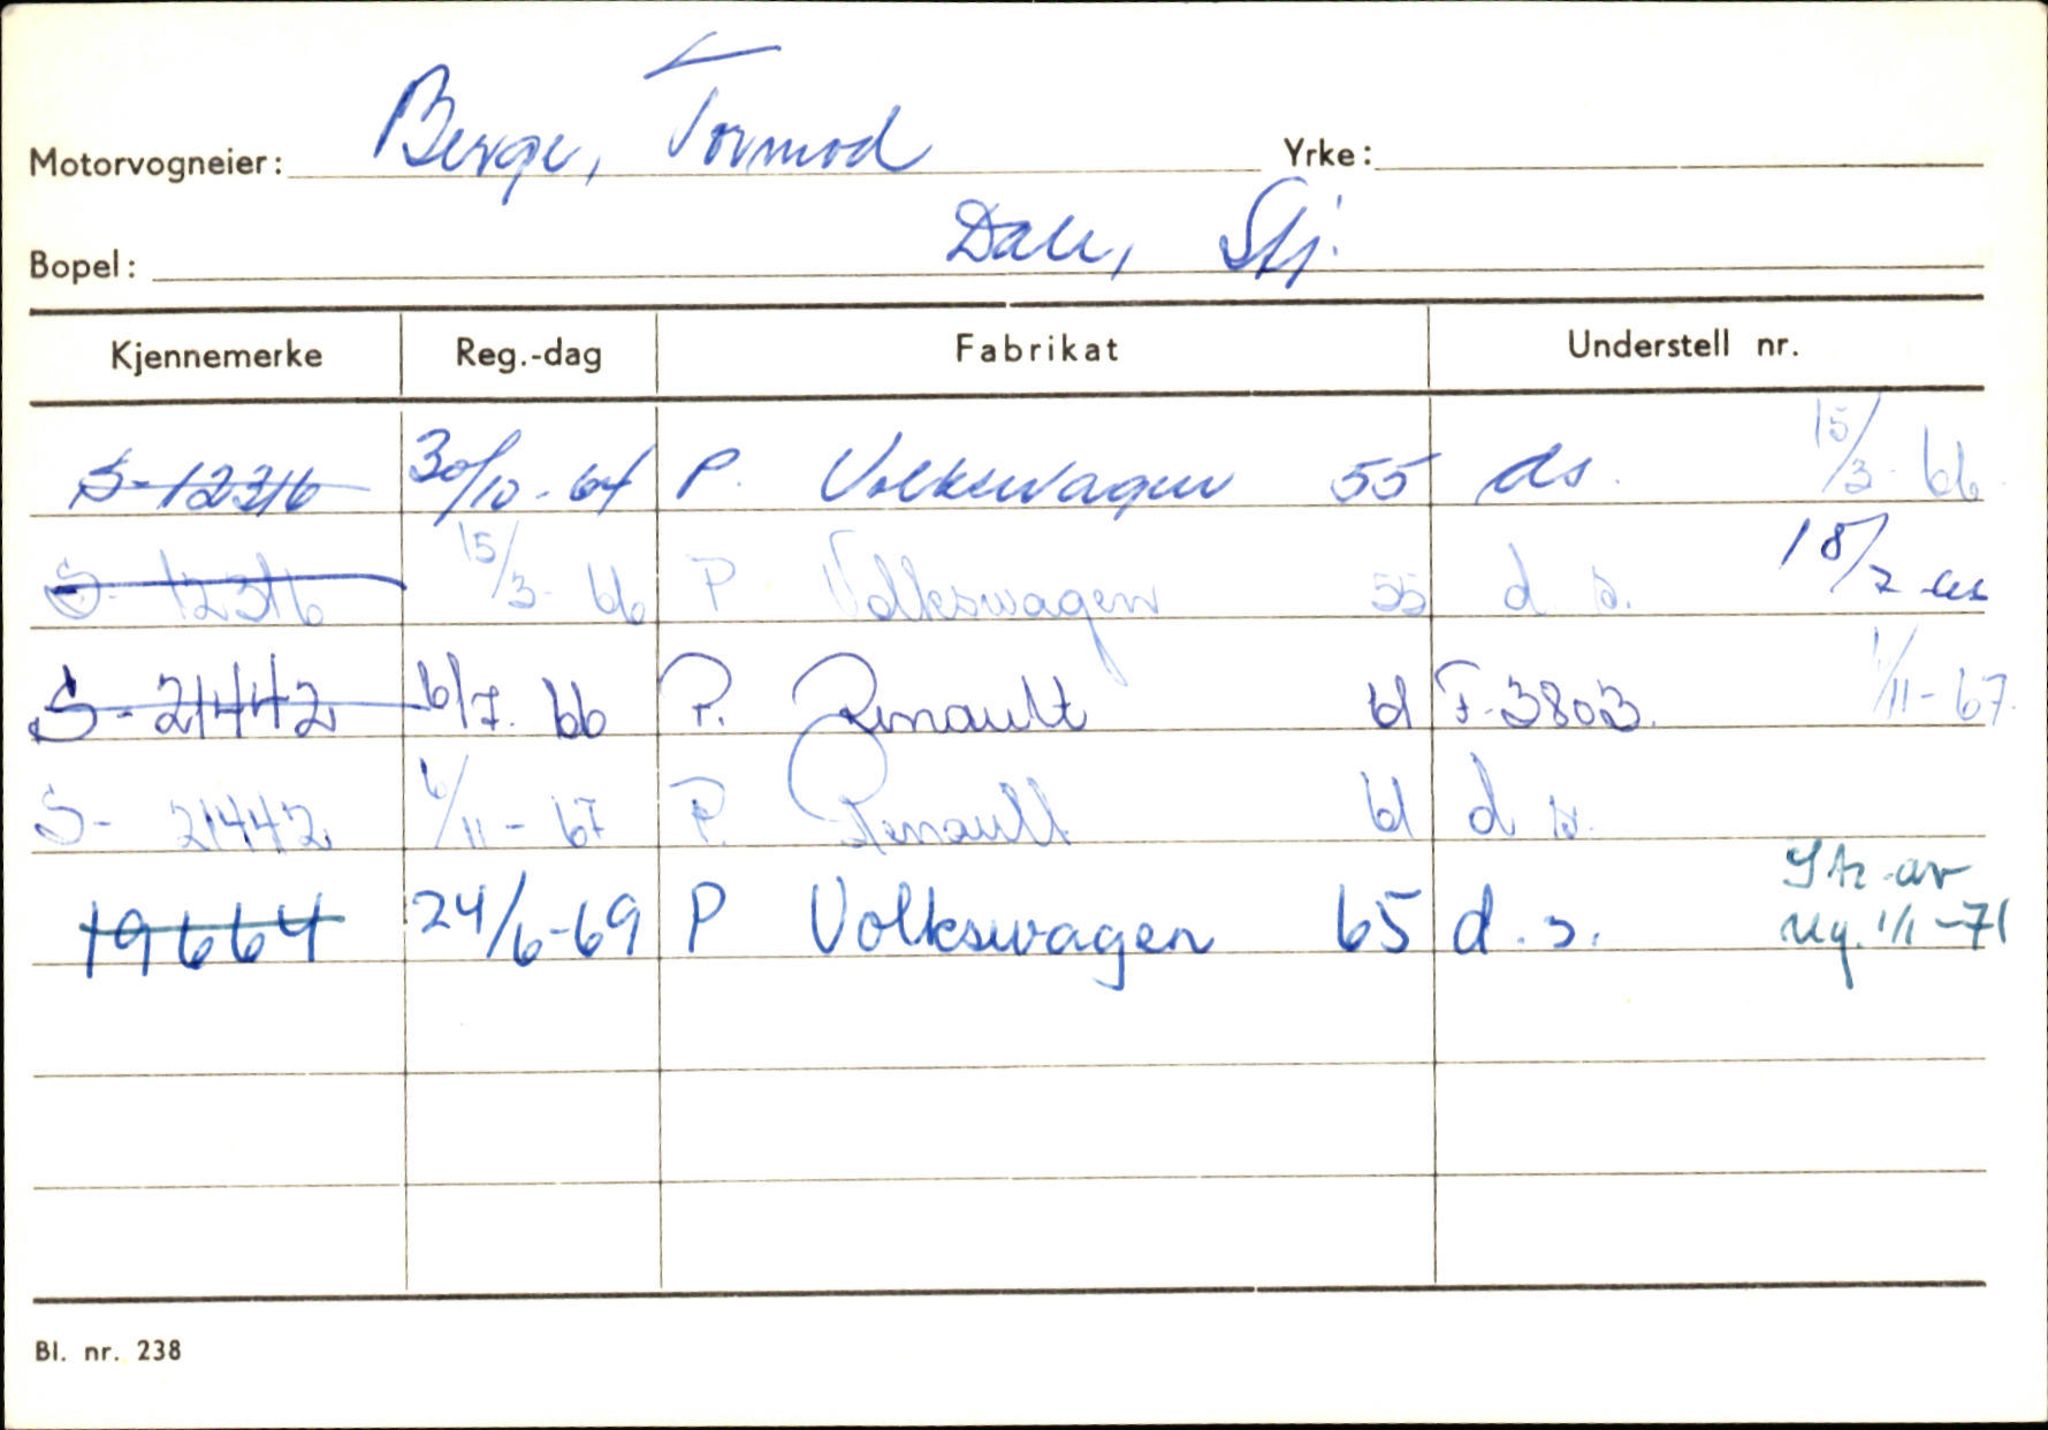 Motorvogneier: Berge, Tormod Yrke:
Bopel: Dale, Sfj.
Kjennemerke Reg.-dag Fabrikat Understell nr.
S-12316 30/10-64 P. Volkswagen 55 ds. 15/3-66
S-12316 15/3-66 P Volkswagen 55 d s. 18/7-66
S-21442 6/7.66 P. Renault 61 F-3803. 6/11-67.
S-21442 6/11-67 P. Renault 61 d s.
19664 24/6-69 P Volkswagen 65 d.s. Str. av
reg. 1/1-71
Bl. nr. 238